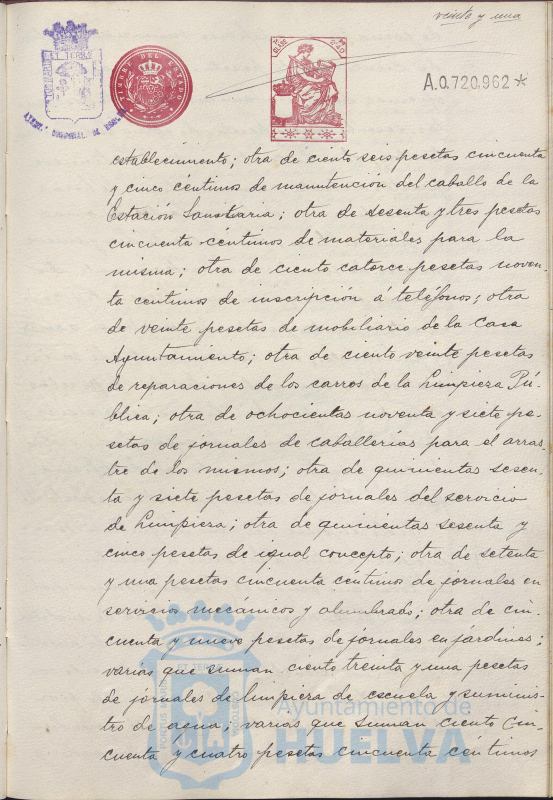 veinte y una
TIMBRE DEL ESTADO
CLASE 8ª
A.0.720,962 *
establecimiento; otra de ciento seis pesetas cincuenta
y cinco céntimos de manutención del caballo de la
Estación Sanitaria; otra de sesenta y tres pesetas
cincuenta céntimos de materiales para la
misma; otra de ciento catorce pesetas noven-
ta céntimos de inscripción á teléfonos; otra
de veinte pesetas de mobiliario de la Casa
Ayuntamiento; otra de ciento veinte pesetas
de reparaciones de los carros de la Limpieza Pú-
blica; otra de ochocientas noventa y siete pe-
setas de jornales de caballerías para el arras-
tre de los mismos; otra de quinientas sesen-
ta y siete pesetas de jornales del servicio
de Limpieza; otra de quinientas sesenta y
cinco pesetas de igual concepto; otra de setenta
y una pesetas cincuenta céntimos de jornales en
servicios mecánicos y alumbrado; otra de cin-
cuenta y nueve pesetas de jornales en jardines;
varias que suman ciento treinta y una pesetas
de jornales de limpieza de escuela y suminis-
tro de agua; varias que suman ciento cin-
cuenta y cuatro pesetas cincuenta céntimos
Ayuntamiento de
HUELVA